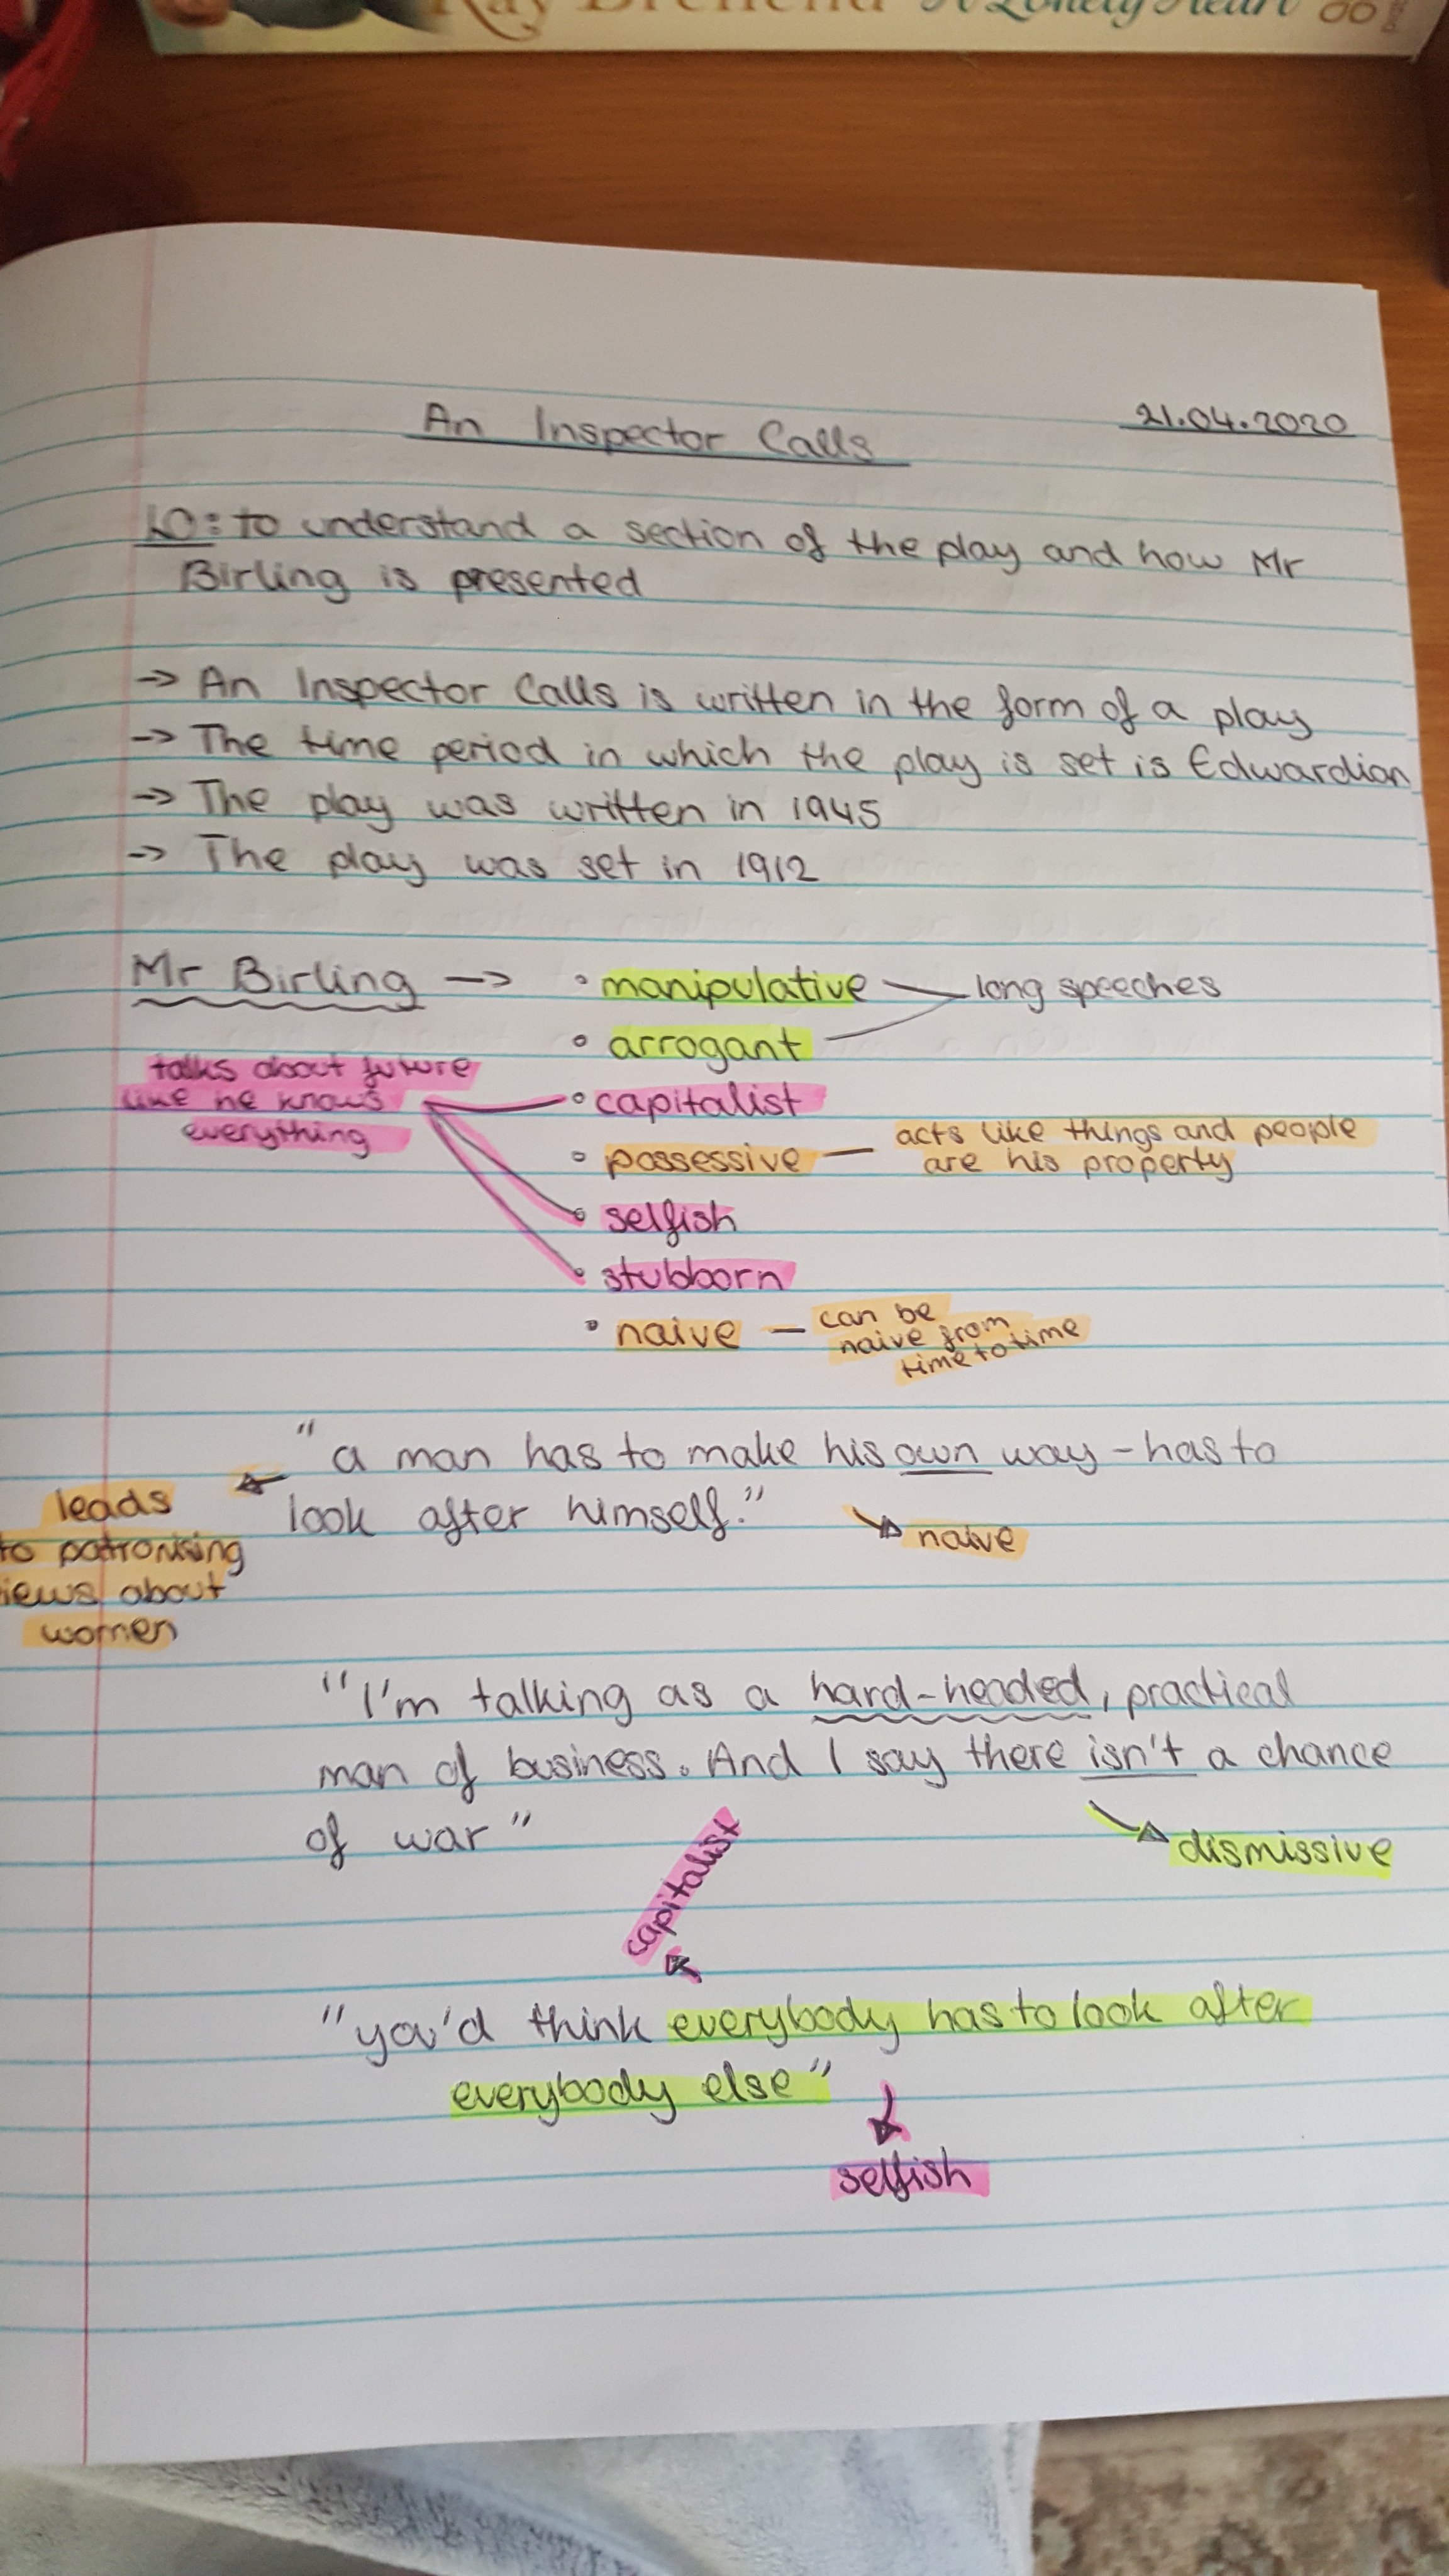 A Lonely Heart
An Inspector Calls
21.04.2020
LO: to understand a section of the play and how Mr
Birling is presented
-> An Inspector Calls is written in the form of a play
-> The time period in which the play is set is Edwardian
-> The play was written in 1945
-> The play was set in 1912
Mr Birling -> • manipulative — long speeches
• arrogant
talks about future
like he knows
everything
• capitalist
• possessive — acts like things and people
are his property
• selfish
• stubborn
• naive — can be
naive from
time to time
"a man has to make his own way - has to
look after himself."
leads
to patronising
iews about
women
naive
"I'm talking as a hard-headed, practical
man of business. And I say there isn't a chance
of war"
dismissive
capitalist
"you'd think everybody has to look after
everybody else"
selfish